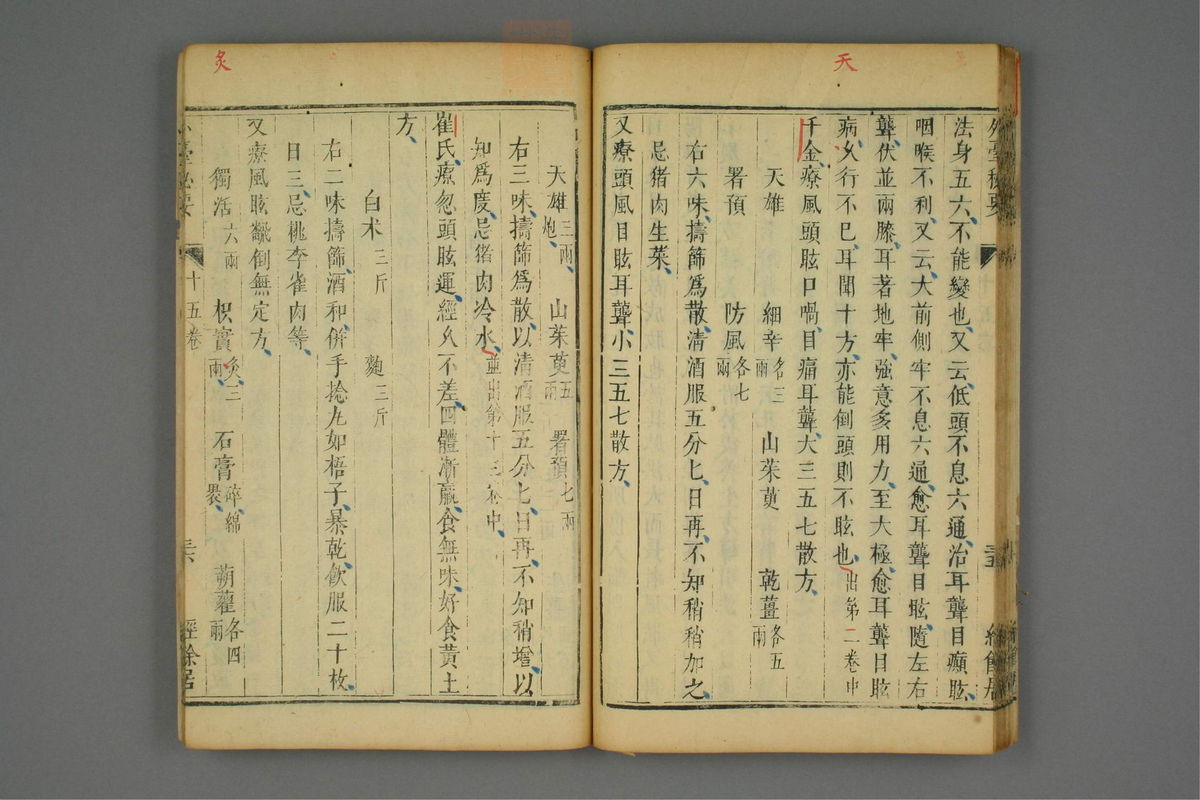 天
外臺秘要
法身五六不能變也又云低頭不息六通治耳聾目癲眩
咽喉不利又云大前側牢不息六通愈耳聾目眩隨左右
聾伏並兩膝耳著地牢強意多用力至大極愈耳聾目眩
病久行不已耳聞十方亦能倒頭則不眩也出第二卷中
千金療風頭眩口喎目痛耳聾大三五七散方
天雄 細辛各三兩 山茱萸 乾薑各五兩
署預 防風各七兩
右六味擣篩爲散清酒服五分匕日再不知稍稍加之
忌猪肉生菜
又療頭風目眩耳聾小三五七散方
炙
天雄三兩炮 山茱萸五兩 署預七兩
右三味擣篩爲散以清酒服五分匕日再不知稍增以
知爲度忌猪肉冷水並出第十三卷中
崔氏療忽頭眩運經久不差四體漸羸食無味好食黃土
方
白朮三斤 麴三斤
右二味擣篩酒和併手捻丸如梧子暴乾飲服二十枚
日三忌桃李雀肉等
又療風眩飜倒無定方
獨活六兩 枳實炙三兩 石膏碎綿裹 蒴藋各四兩
外臺秘要 十五卷 三六 經餘居